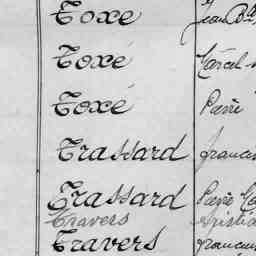 Toxe Jean Bte
Toxé Marcel
Toxé Pierre
Trassard Francis
Trassard Pierre
Travers Christia
Travers Francis